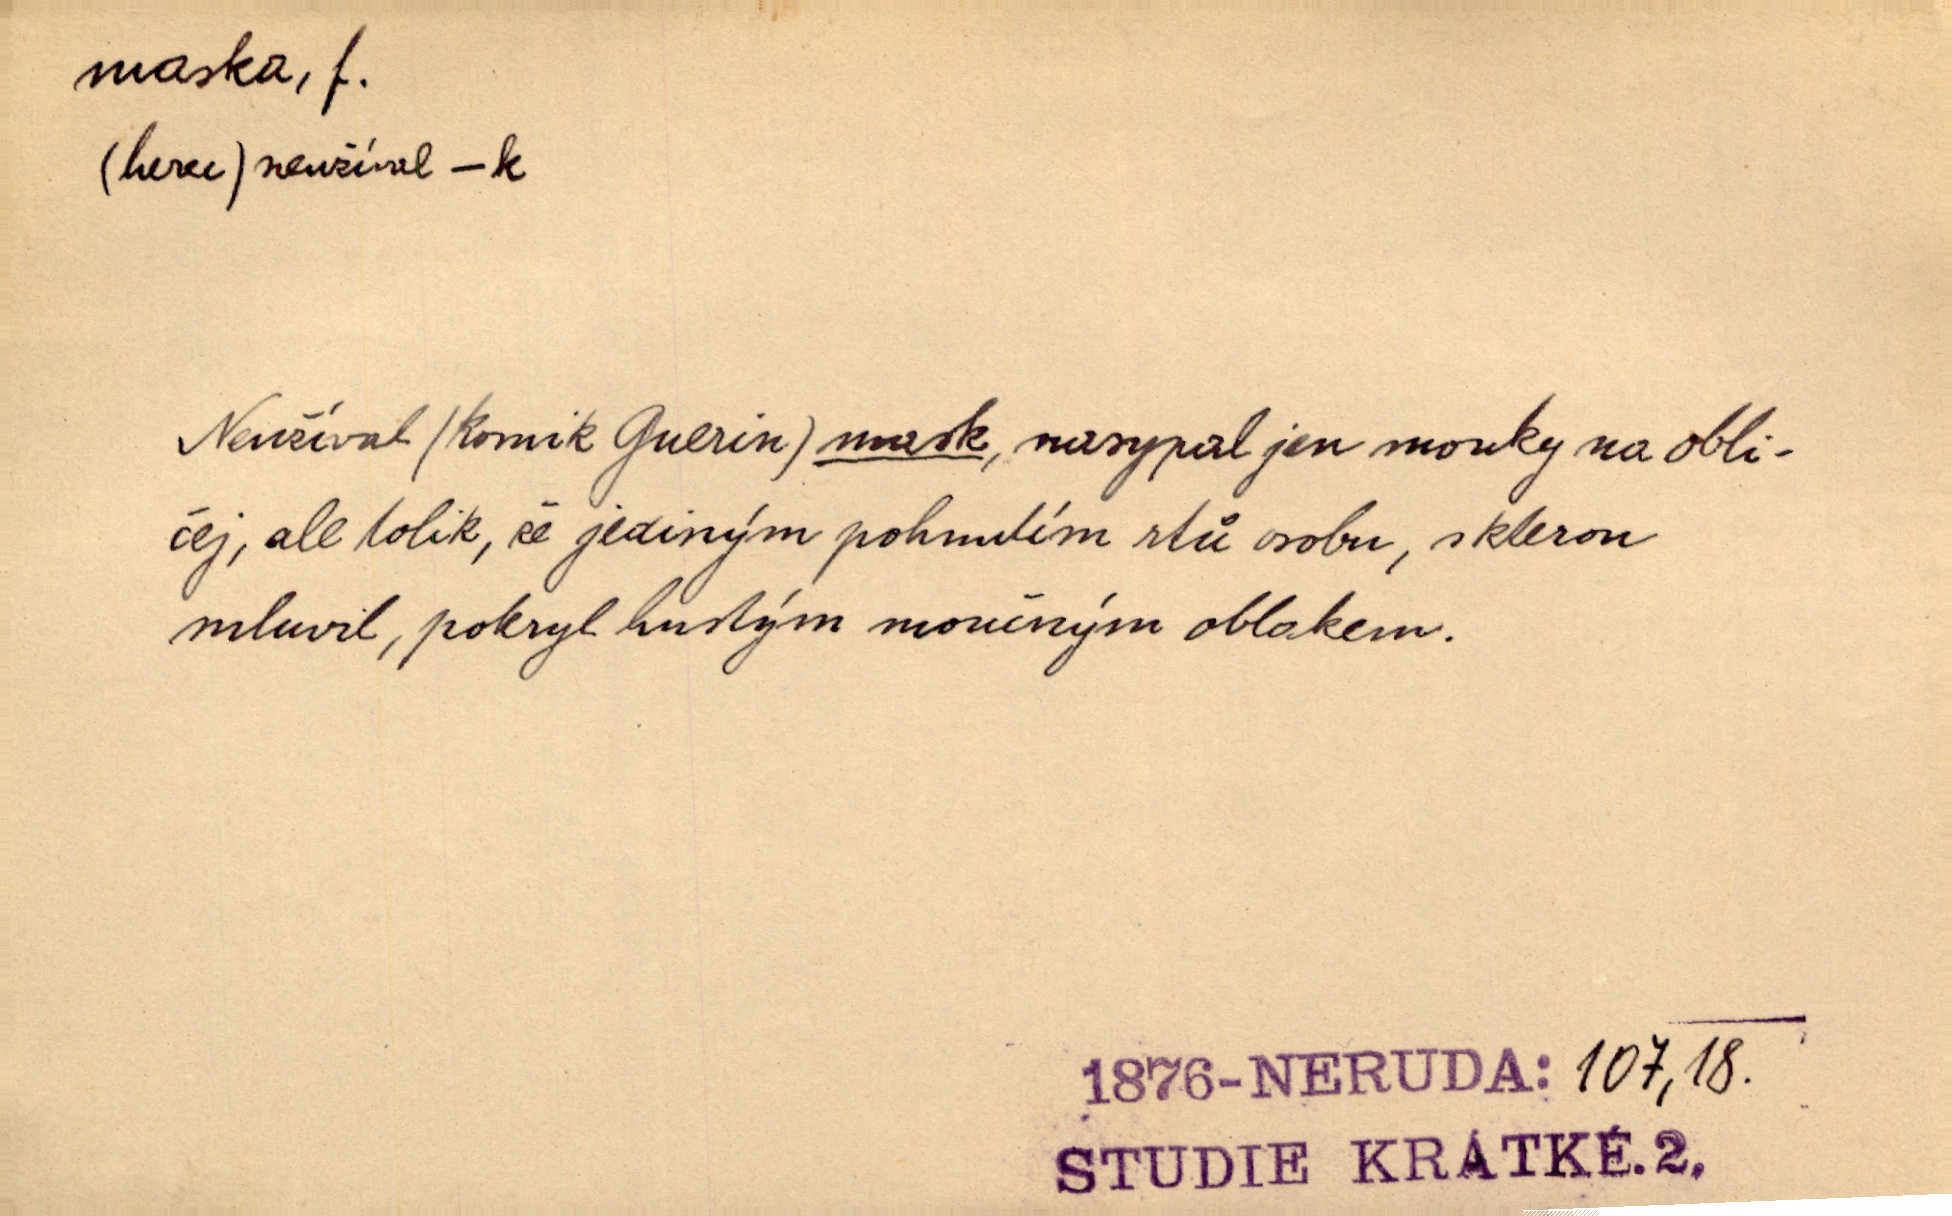 maska, f.
(herec) neužíval – k
Neužíval (komik Guerin) mask, nasypal jen mouky na obli-
čej, ale tolik, že jediným pohnutím rtů osobu, s kterou
mluvil, pokryl hustým moučným oblakem.
1876-NERUDA: 107,18.
STUDIE KRÁTKÉ.2.